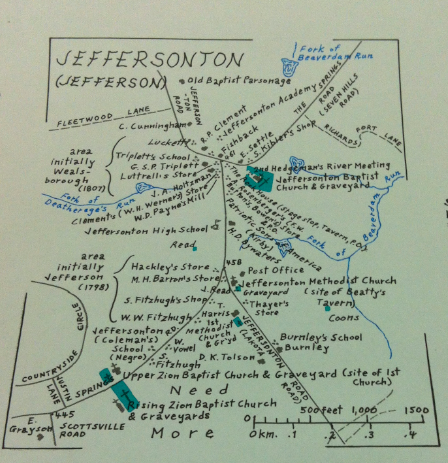 JEFFERSONTON
(JEFFERSON)
Fork of
Beaverdam Run
Old Baptist Parsonage
JEFFERSON
-TON
ROAD
FLEETWOOD LANE
C. Cunningham
R.P. Clement
Jeffersonton Academy
Fishback
E. Settle
S. Kibler's Shop
THE SPRINGS
ROAD
(SEVEN HILLS
ROAD)
RICHARDS
FORT LANE
Luckett
Triplett's School
G.S.P. Triplett
Luttrell's Store
area
initially
Weals-
borough
(1807)
2nd Hedgeman's River Meeting
Jeffersonton Baptist
Church & Graveyard
J.A. Holtzman
Clement's (W.H. Werner's) Store
W.D. Payne's Mill
Fork of
Deatherage's Run
Jeffersonton High School
Read
Patriotic Sons of America
(Kirby)
H.D. Bywaters
Fork of
Beaverdam
Run
area
initially
Jefferson
(1798)
Hackley's Store
M.H. Barron's Store
S. Fitzhugh's Shop
W.W. Fitzhugh
458
Post Office
J. Read
Jeffersonton Methodist Church
Graveyard
(Site of Beatty's
Tavern)
Thayer's
Store
Coons
T.
Harris
1st
Methodist
Church
& Gr'yd
Jeffersonton RD.
(Coleman's)
School
(Negro)
W.
Vowel
S.
Fitzhugh
D.K. Tolson
JEFFERSONTON
ROAD
(LAKOTA
ROAD)
Burnley's School
Burnley
COUNTRYSIDE
CIRCLE
JUSTIN
LANE
SPRINGS
Upper Zion Baptist Church & Graveyard (site of 1st
Church)
Need
Rising Zion Baptist Church
& Graveyards
More
E.
Grayson
445
SCOTTSVILLE
ROAD
0 500 feet 1,000 1500
0 km. .1 .2 .3 .4